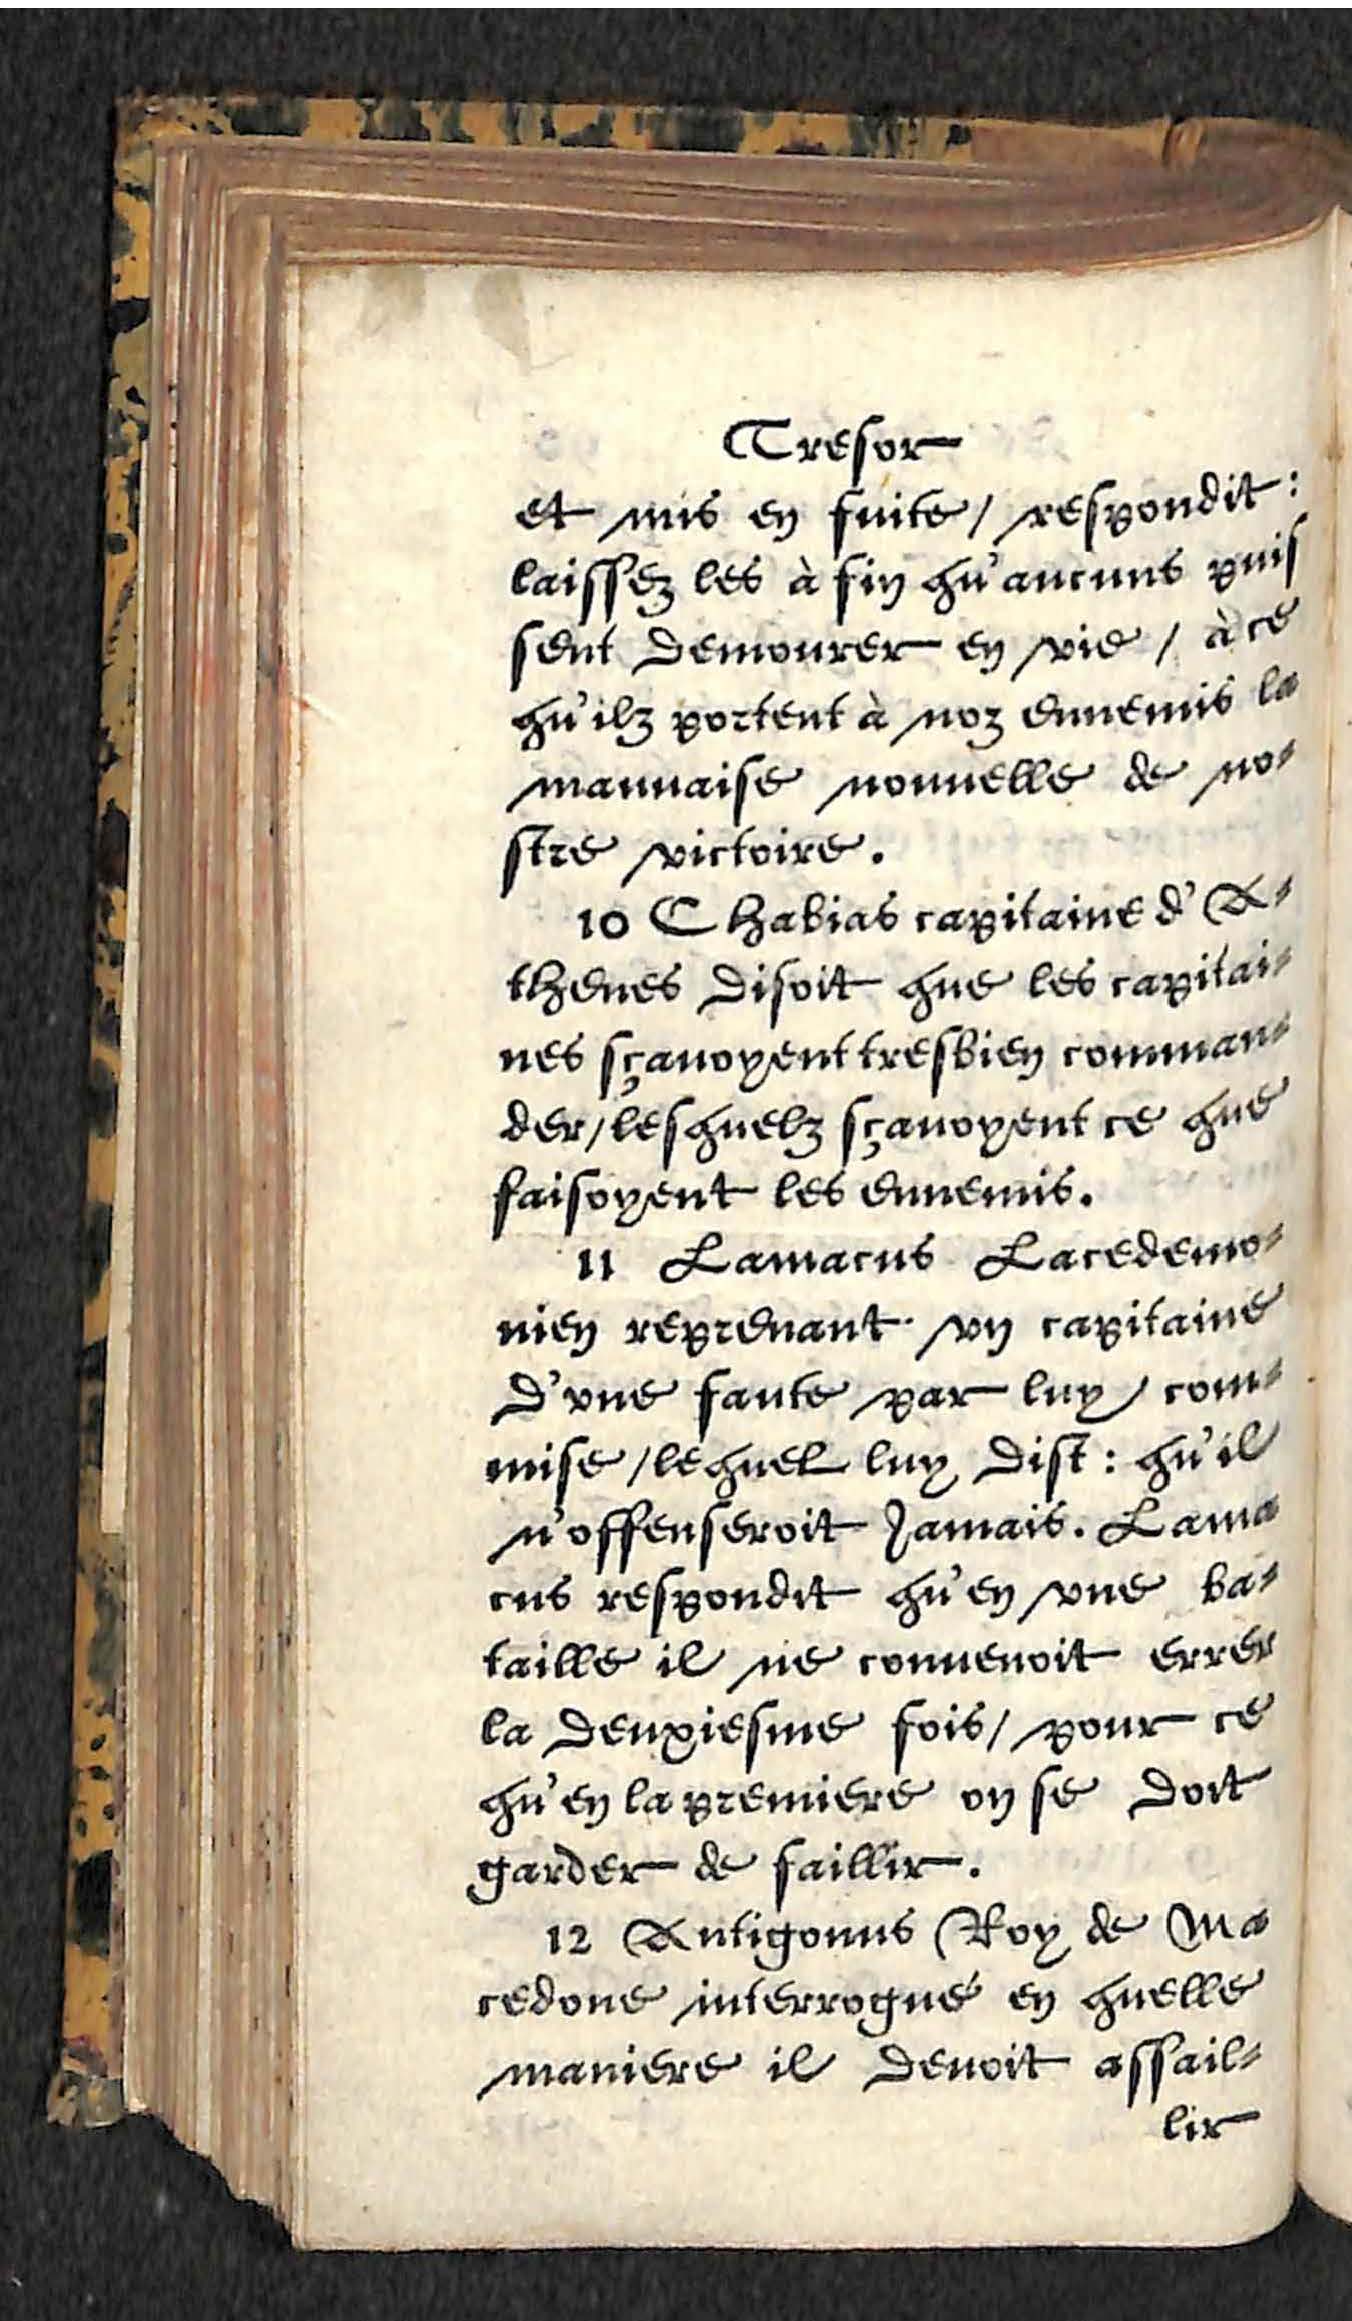 Tresor
et mis en fuite / respondit:
laissez les à fin qu'aucuns puis
sent demourer en vie / à ce
qu'ilz portent à noz ennemis la
mauuaise nouuelle de no-
stre victoire.
10 Chabias capitaine d'A-
thenes disoit que les capitai-
nes sçauoyent tresbien comman-
der / lesquelz sçauoyent ce que
faisoyent les ennemis.
11 Lamacus Lacedemo-
nien reprenant vn capitaine
d'vne faute par luy com-
mise / lequel luy dist: qu'il
n'offenseroit Jamais. Lama
cus respondit qu'en vne ba-
taille il ne conuenoit errer
la deuxiesme fois / pour ce
qu'en la premiere on se doit
garder de faillir.
12 Antigonus Roy de Ma
cedone interrogué en quelle
maniere il deuoit assail-
lir